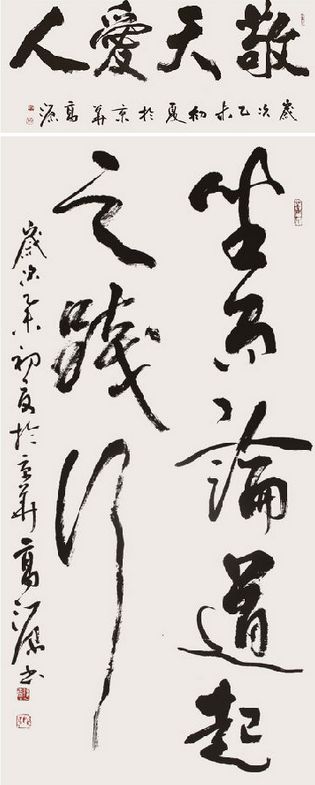 敬天愛人
歲次乙未初夏於京華高源
坐而論道起
之踐行
歲次乙未初夏於京華高書